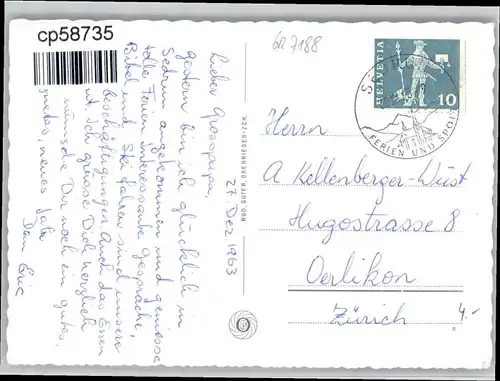 cp58735
GR 7188
27 Dez 1963
Lieber Grosspapa,
gestern bin ich glücklich in
Sedrun angekommen und geniesse
tolle Ferien. Interessante Gespräche,
Bibel und Ski fahren sind unsere
Beschäftigungen. Auch das Essen
ist. Ich grüsse Dich herzlich
wünsche Dir noch ein gutes,
gutes, neues Jahr
Dein Eric
RUD. SUTER, OBERRIEDEN-ZCH.
HELVETIA
10
FERIEN UND SPORT
Herrn
A Kellenberger-Wüst
Hugostrasse 8
Oerlikon
Zürich
4.-